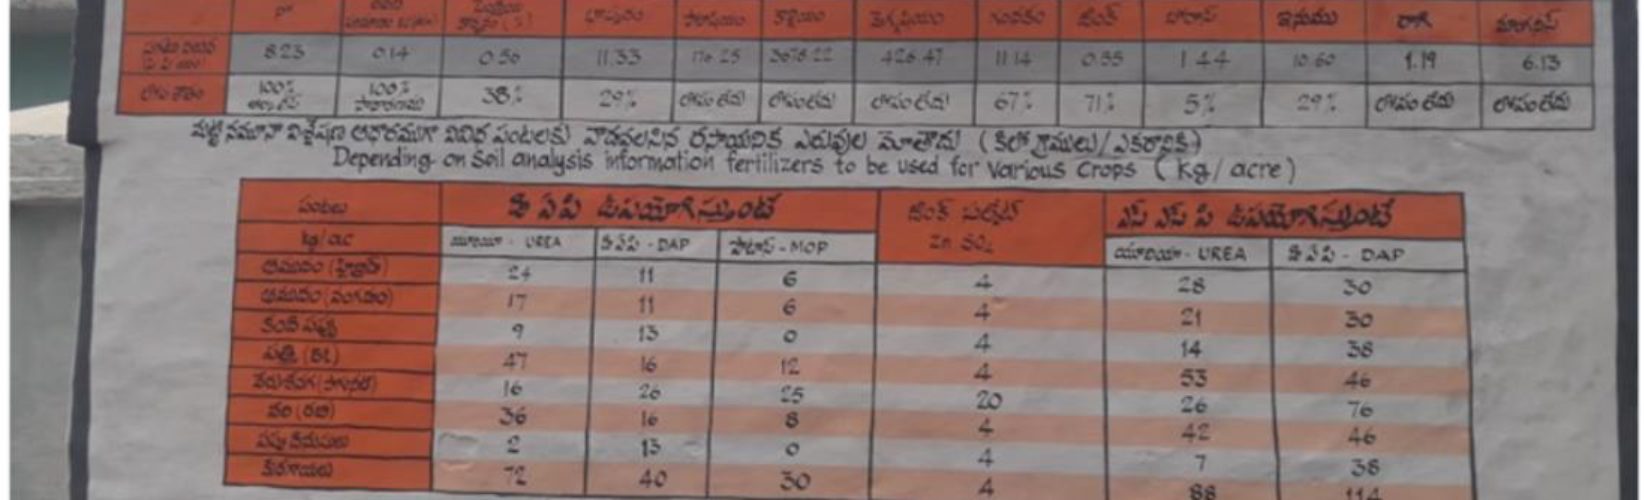 pH సేంద్రియ కార్బనం (%) భాస్వరం పొటాషియం కాల్షియం మెగ్నీషియం గంధకం జింక్ బోరాన్ ఇనుము రాగి మాంగనీస్
8.23 0.14 0.56 11.33 176.25 3678.22 426.47 11.14 0.55 1.44 10.60 1.19 6.13
100% 100% 38% 29% లోపం లేదు లోపం లేదు లోపం లేదు 67% 71% 5% 29% లోపం లేదు లోపం లేదు
మట్టి నమూనా విశ్లేషణ ఆధారముగా వివిధ పంటలకు వాడవలసిన రసాయనిక ఎరువుల మోతాదు (కిలో గ్రాములు/ఎకరానికి)
Depending on soil analysis information fertilizers to be used for various crops (kg/acre)
పంటలు డి ఏ పి ఉపయోగిస్తుంటే జింక్ సల్ఫేట్ ఎస్ ఎస్ పి ఉపయోగిస్తుంటే
kg/ac యూరియా - UREA డి ఏ పి - DAP పొటాష్ - MOP Zn SO4 యూరియా - UREA డి ఏ పి - DAP
ఆముదం (హైబ్రిడ్) 24 11 6 4 28 30
ఆముదం 17 11 6 4 21 30
కంది 9 13 0 4 14 38
పత్తి (Bt) 47 16 12 4 53 46
వేరుశనగ 16 26 25 20 26 76
వరి (రబి) 36 16 8 4 42 46
పప్పు దినుసులు 2 13 0 4 7 38
కూరగాయలు 72 40 30 4 88 114